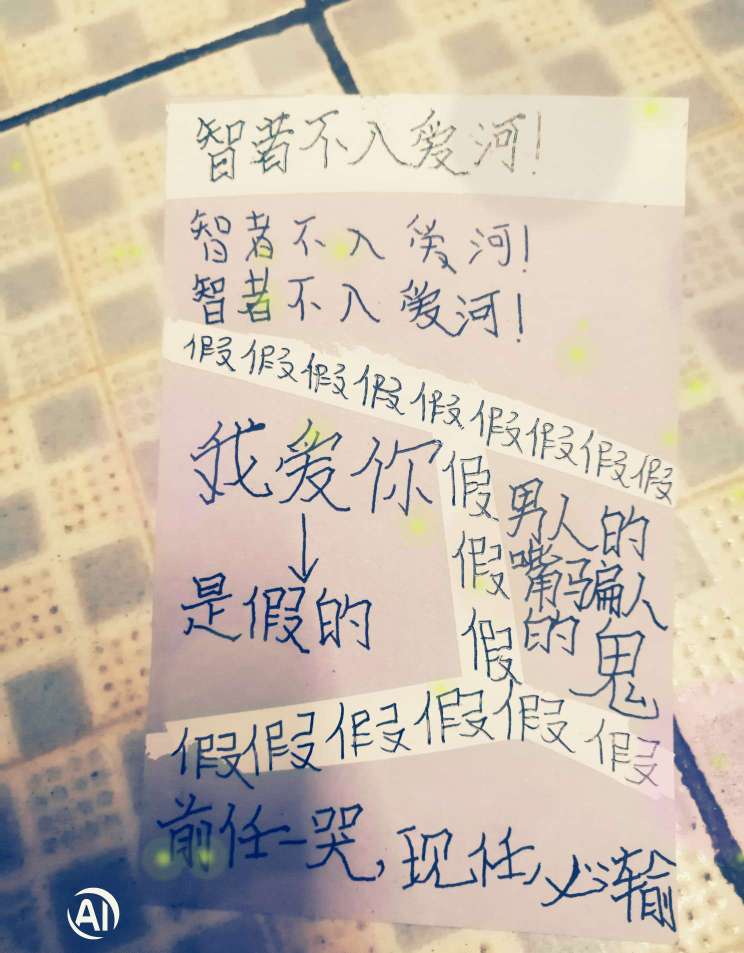 智者不入爱河!
智者不入爱河!
智者不入爱河!
假假假假假假假假假
我爱你
是假的
假
假
假
男人的
嘴骗人
的鬼
假假假假假假
前任一哭,现任,必输
AI